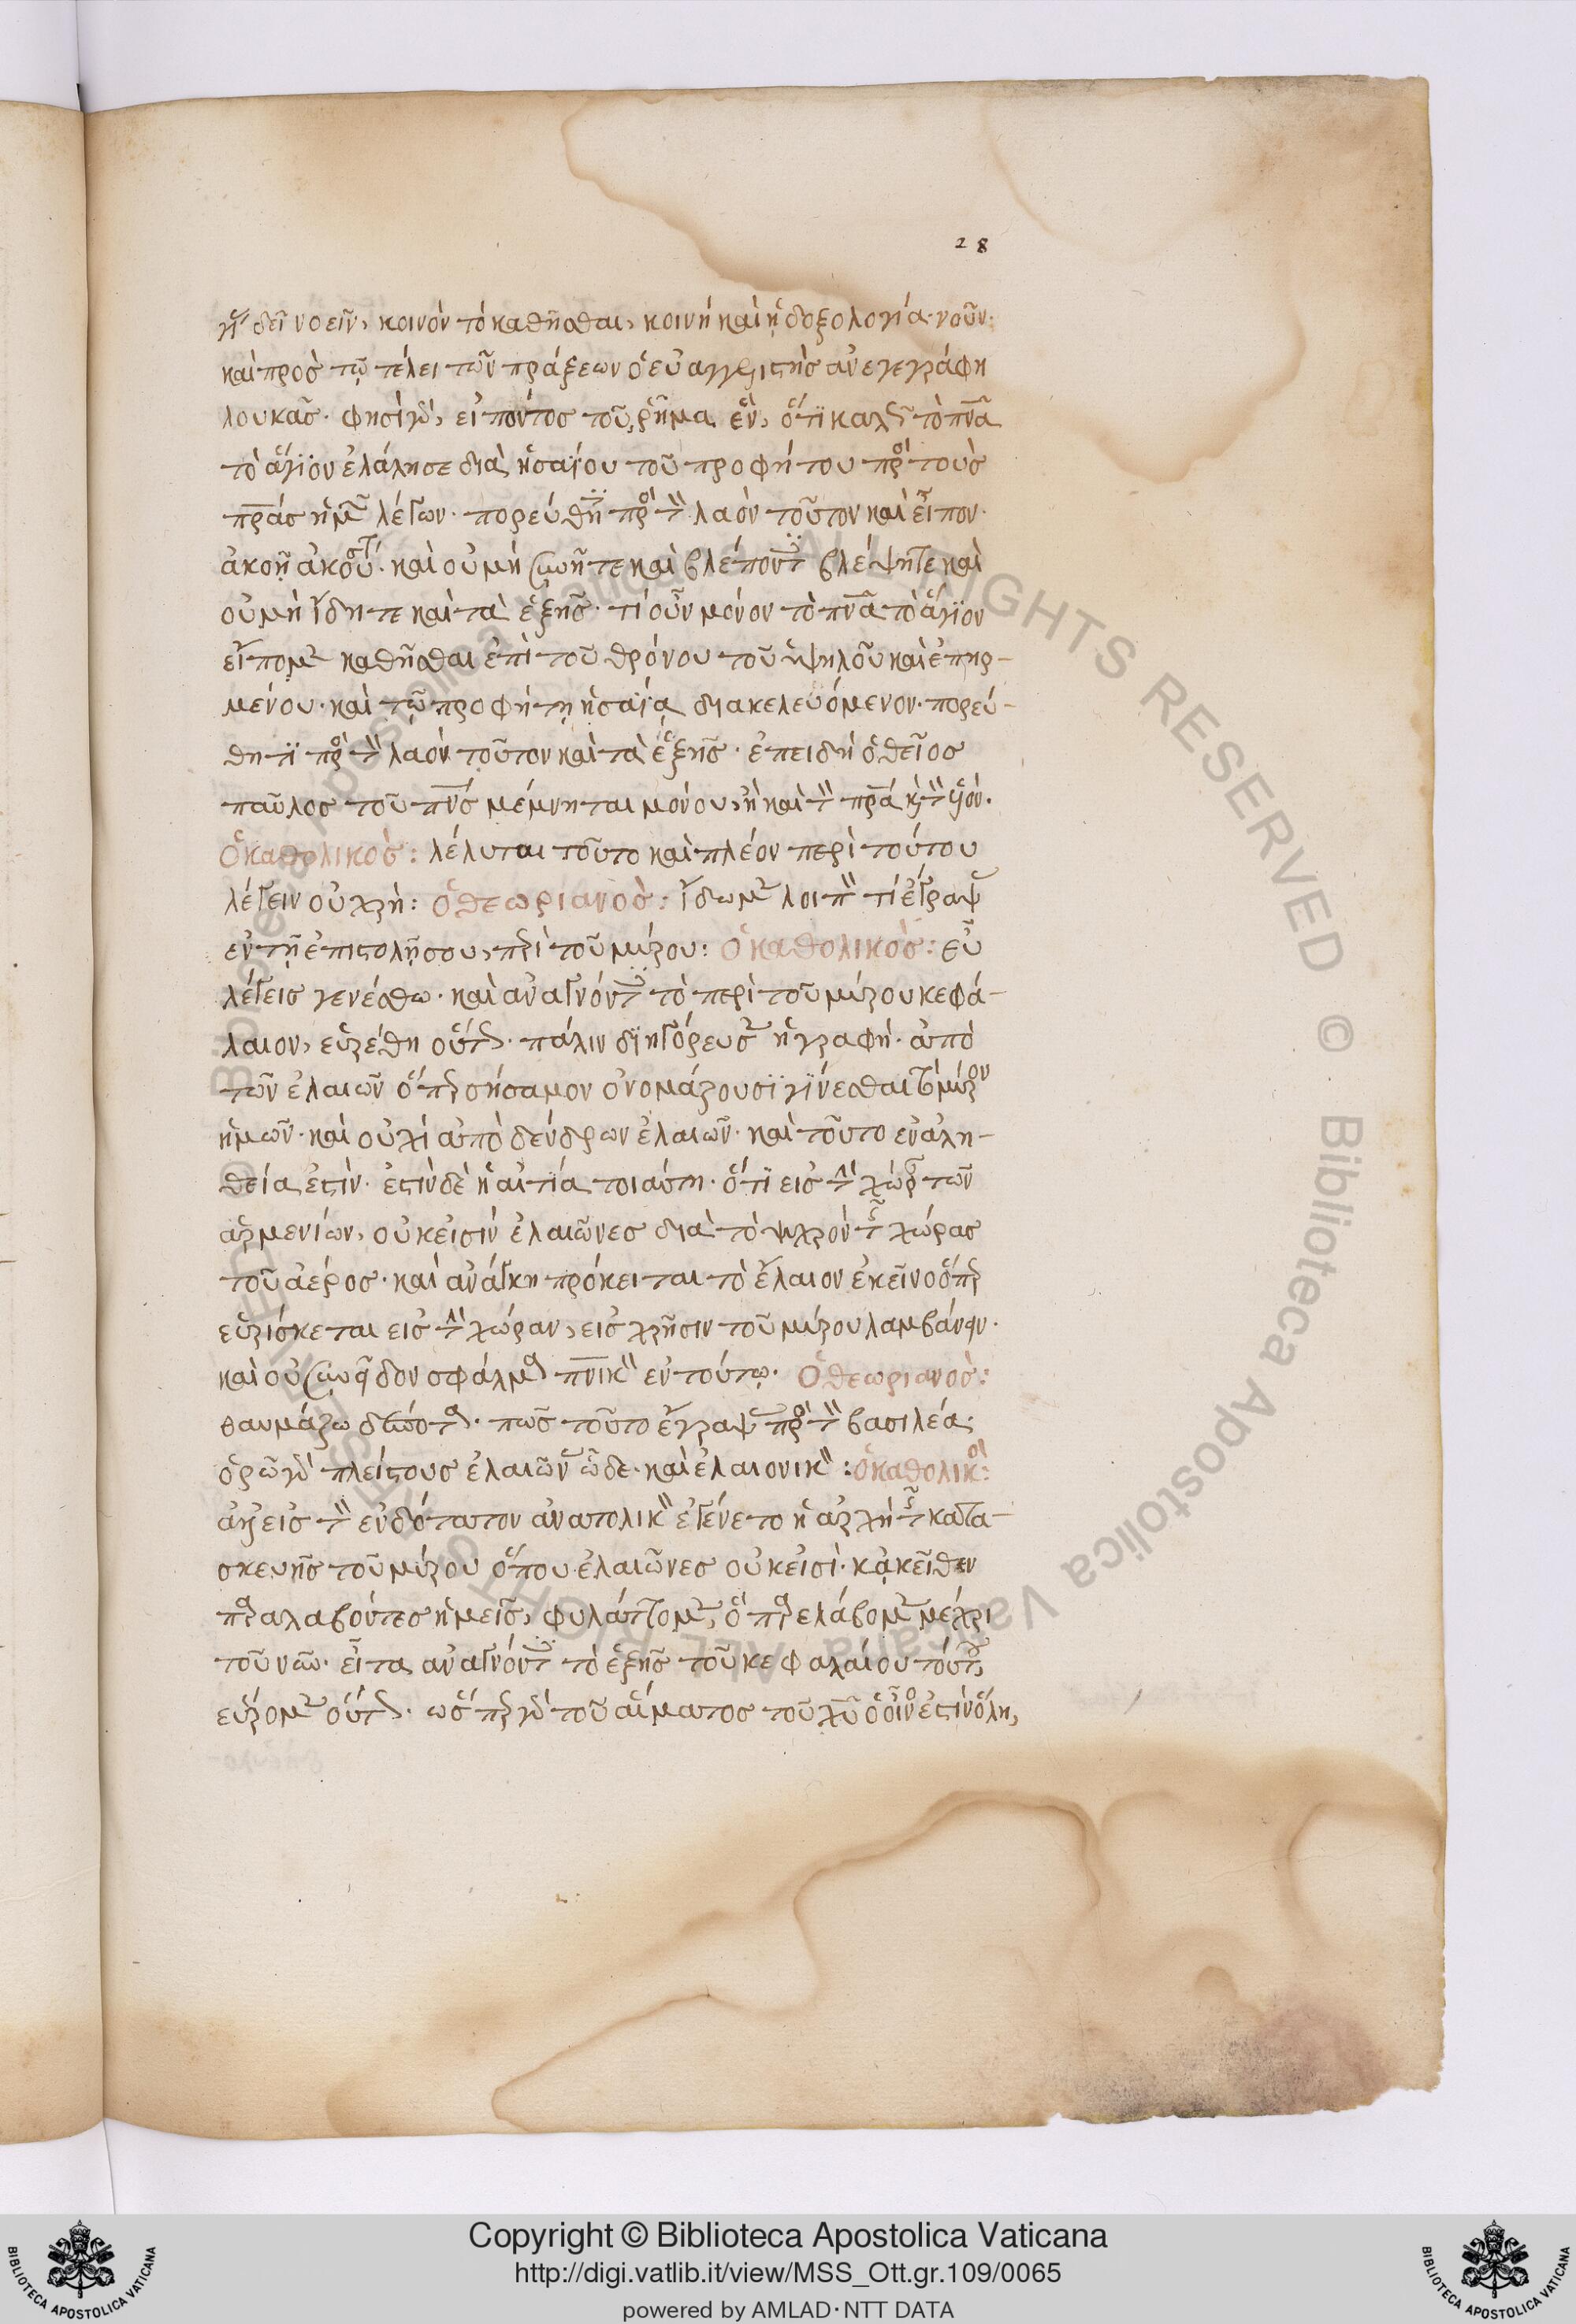 28
γὰρ δεῖ νοεῖν, κοινὸν τὸ καθῆσθαι, κοινὴ καὶ ἡ δοξολογία· γοῦν·
καὶ πρὸς τῷ τέλει τῶν πράξεων ὁ εὐαγγελιστὴς ἀνεγεγράφη
λουκᾶς· φησὶ γὰρ, εἰπόντος τοῦ ῥῆμα ἓν, ὅτι καλῶς τὸ πνα
τὸ ἅγιον ἐλάλησε διὰ ἡσαΐου τοῦ προφήτου πρὸς τοὺς
πρας ἡμῶν λέγων· πορεύθητι πρὸς τὸν λαὸν τοῦτον καὶ εἶπον·
ἀκοῇ ἀκούσητε· καὶ οὐ μὴ συνῆτε καὶ βλέποντες βλέψητε καὶ
οὐ μὴ ἴδητε καὶ τὰ ἑξῆς· τί οὖν μόνον τὸ πνα τὸ ἅγιον
εἴπομεν καθῆσθαι ἐπὶ τοῦ θρόνου τοῦ ὑψηλοῦ καὶ ἐπηρ-
μένου· καὶ τῷ προφήτῃ ἡσαΐᾳ διακελευόμενον· πορεύ-
θητι πρὸς τὸν λαὸν τοῦτον καὶ τὰ ἑξῆς· ἐπειδὴ ὁ θεῖος
παῦλος τοῦ πνς μέμνηται μόνου, ἢ καὶ τὸν πρα καὶ τὸν υἱόν·
ὁ καθολικὸς: λέλυται τοῦτο καὶ πλέον περὶ τούτου
λέγειν οὐ χρή: ὁ θεωριανὸς: ἴδωμεν λοιπὸν τί ἔγραψας
ἐν τῇ ἐπιστολῇ σου, περὶ τοῦ μύρου: ὁ καθολικὸς: εὖ
λέγεις γενέσθω· καὶ ἀναγνόντες τὸ περὶ τοῦ μύρου κεφά-
λαιον, εὑρέθη οὕτως· πάλιν διηγόρευσεν ἡ γραφή· ἀπὸ
τῶν ἐλαιῶν ὅπερ σήσαμον ὀνομάζουσι γίνεσθαι τὸ μύρον
ἡμῶν· καὶ οὐχὶ ἀπὸ δένδρων ἐλαιῶν· καὶ τοῦτο ἐν ἀλη-
θείᾳ ἐστίν· ἔστιν δὲ ἡ αἰτία τοιαύτη· ὅτι εἰς τὴν χώραν τῶν
ἀρμενίων, οὐκ εἰσὶν ἐλαιῶνες διὰ τὸ ψυχρὸν τῆς χώρας
τοῦ ἀέρος· καὶ ἀνάγκη πρόκειται τὸ ἔλαιον ἐκεῖνο ὅπερ
εὑρίσκεται εἰς τὴν χώραν, εἰς χρῆσιν τοῦ μύρου λαμβάνειν·
καὶ οὐ συνεῖδον σφάλμα πνικὸν ἐν τούτῳ· ὁ θεωριανὸς:
θαυμάζω δέσποτα· πῶς τοῦτο ἔγραψας πρὸς τὸν βασιλέα·
ὁρῶ γὰρ πλείστους ἐλαιῶνας ὧδε· καὶ ἐλαιονικὸν: ὁ καθολικὸς:
εἰς τὸν ἐνδότατον ἀνατολικὸν ἐγένετο ἡ ἀρχὴ τῆς κατα-
σκευῆς τοῦ μύρου ὅπου ἐλαιῶνες οὐκ εἰσί· κἀκεῖθεν
παραλαβόντες ἡμεῖς, φυλάττομεν, ὃ παρελάβομεν μέχρι
τοῦ νῦν· εἶτα ἀναγνόντες τὸ ἑξῆς τοῦ κεφαλαίου τούτου,
εὕρομεν οὕτως· ὥσπερ γὰρ τοῦ αἵματος τοῦ χυ ὁ οἶνος ἐστὶν ὕλη,
© Biblioteca Apostolica Vaticana ALL RIGHTS RESERVED
Copyright © Biblioteca Apostolica Vaticana
http://digi.vatlib.it/view/MSS_Ott.gr.109/0065
powered by AMLAD·NTT DATA
BIBLIOTECA APOSTOLICA VATICANA
BIBLIOTECA APOSTOLICA VATICANA